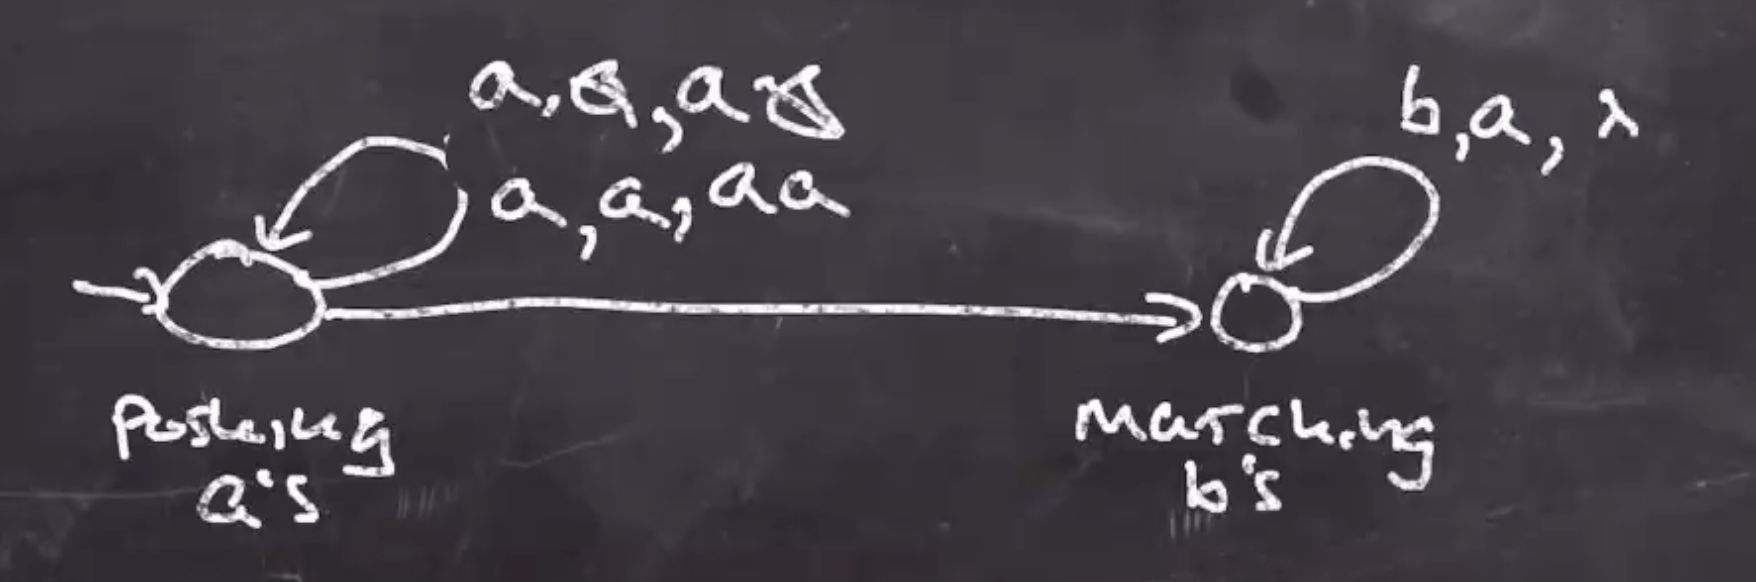 a, a, a
a, a, aa
b, a, λ
Pushing
a's
Matching
b's